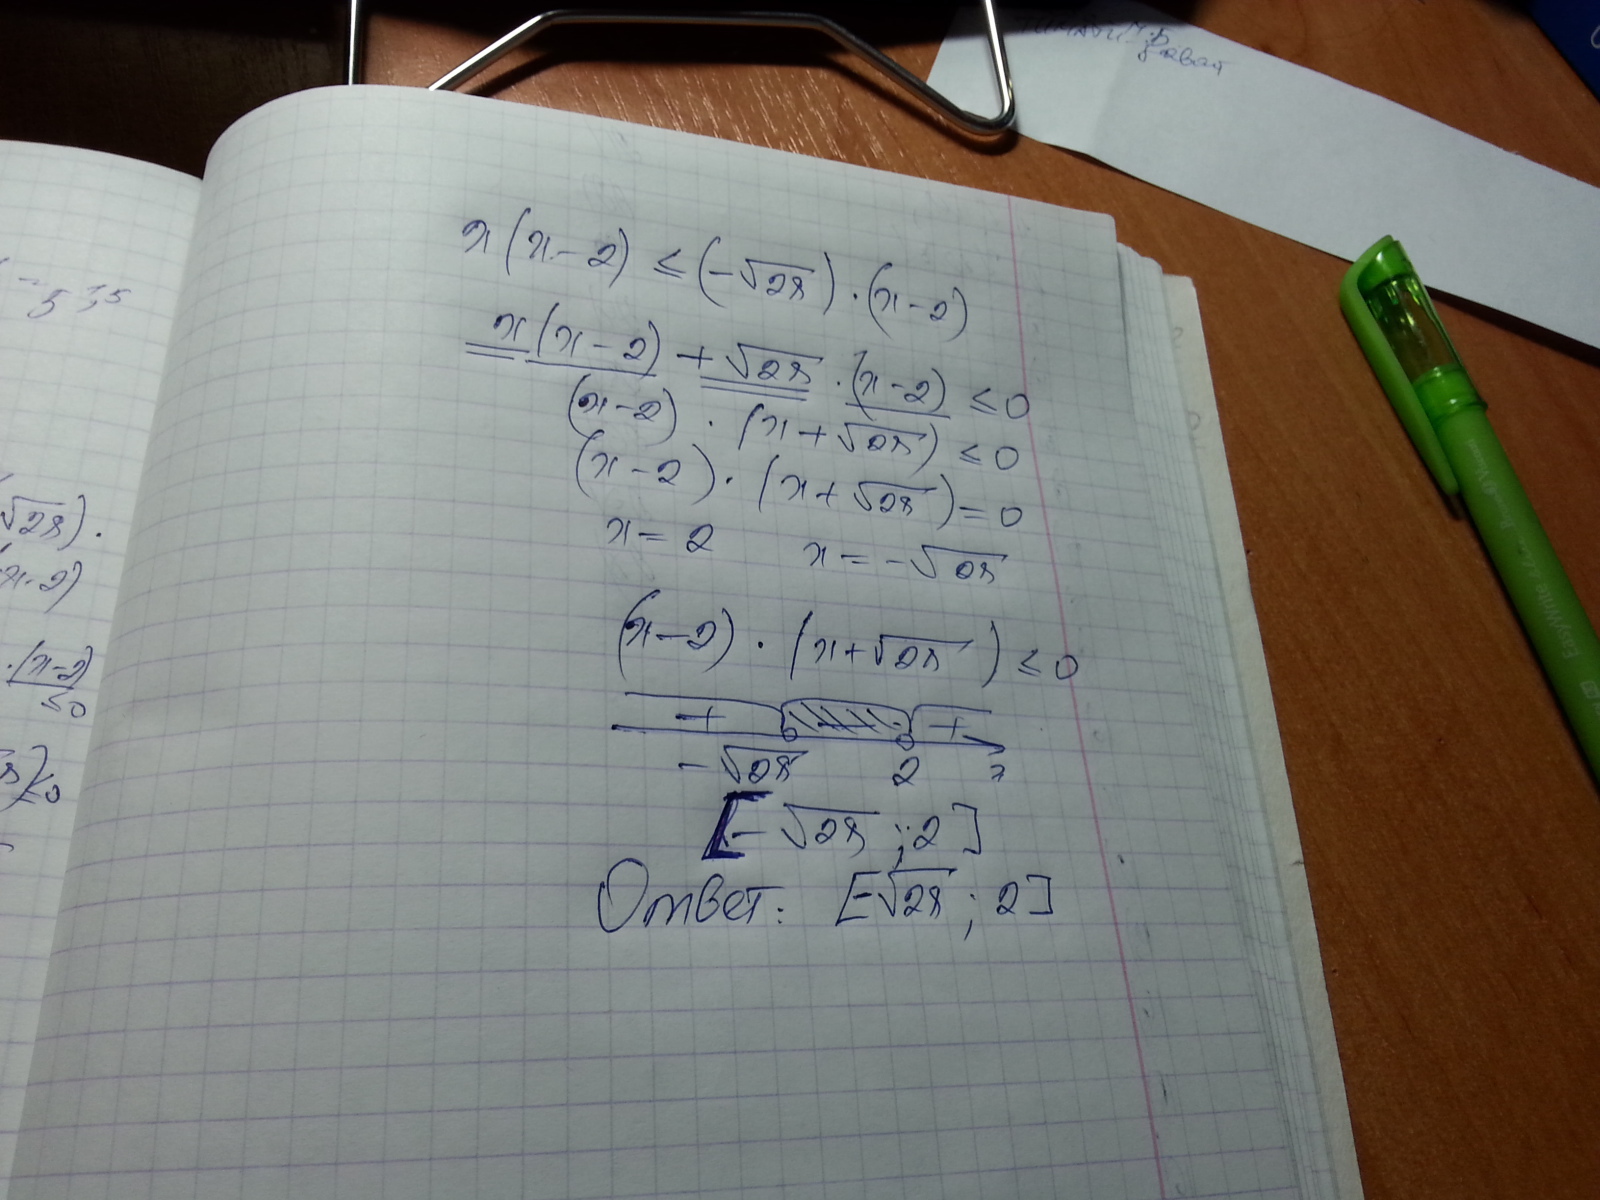 x(x-2) ≤ (-√28)·(x-2)
x(x-2) + √28·(x-2) ≤ 0
(x-2)·(x+√28) ≤ 0
(x-2)·(x+√28) = 0
x = 2 x = -√28
(x-2)·(x+√28) ≤ 0
+ +
-√28 2
[-√28 ; 2]
Ответ: [-√28 ; 2]
√28).
x-2)
·(x-2)
≤0
EasyWrite